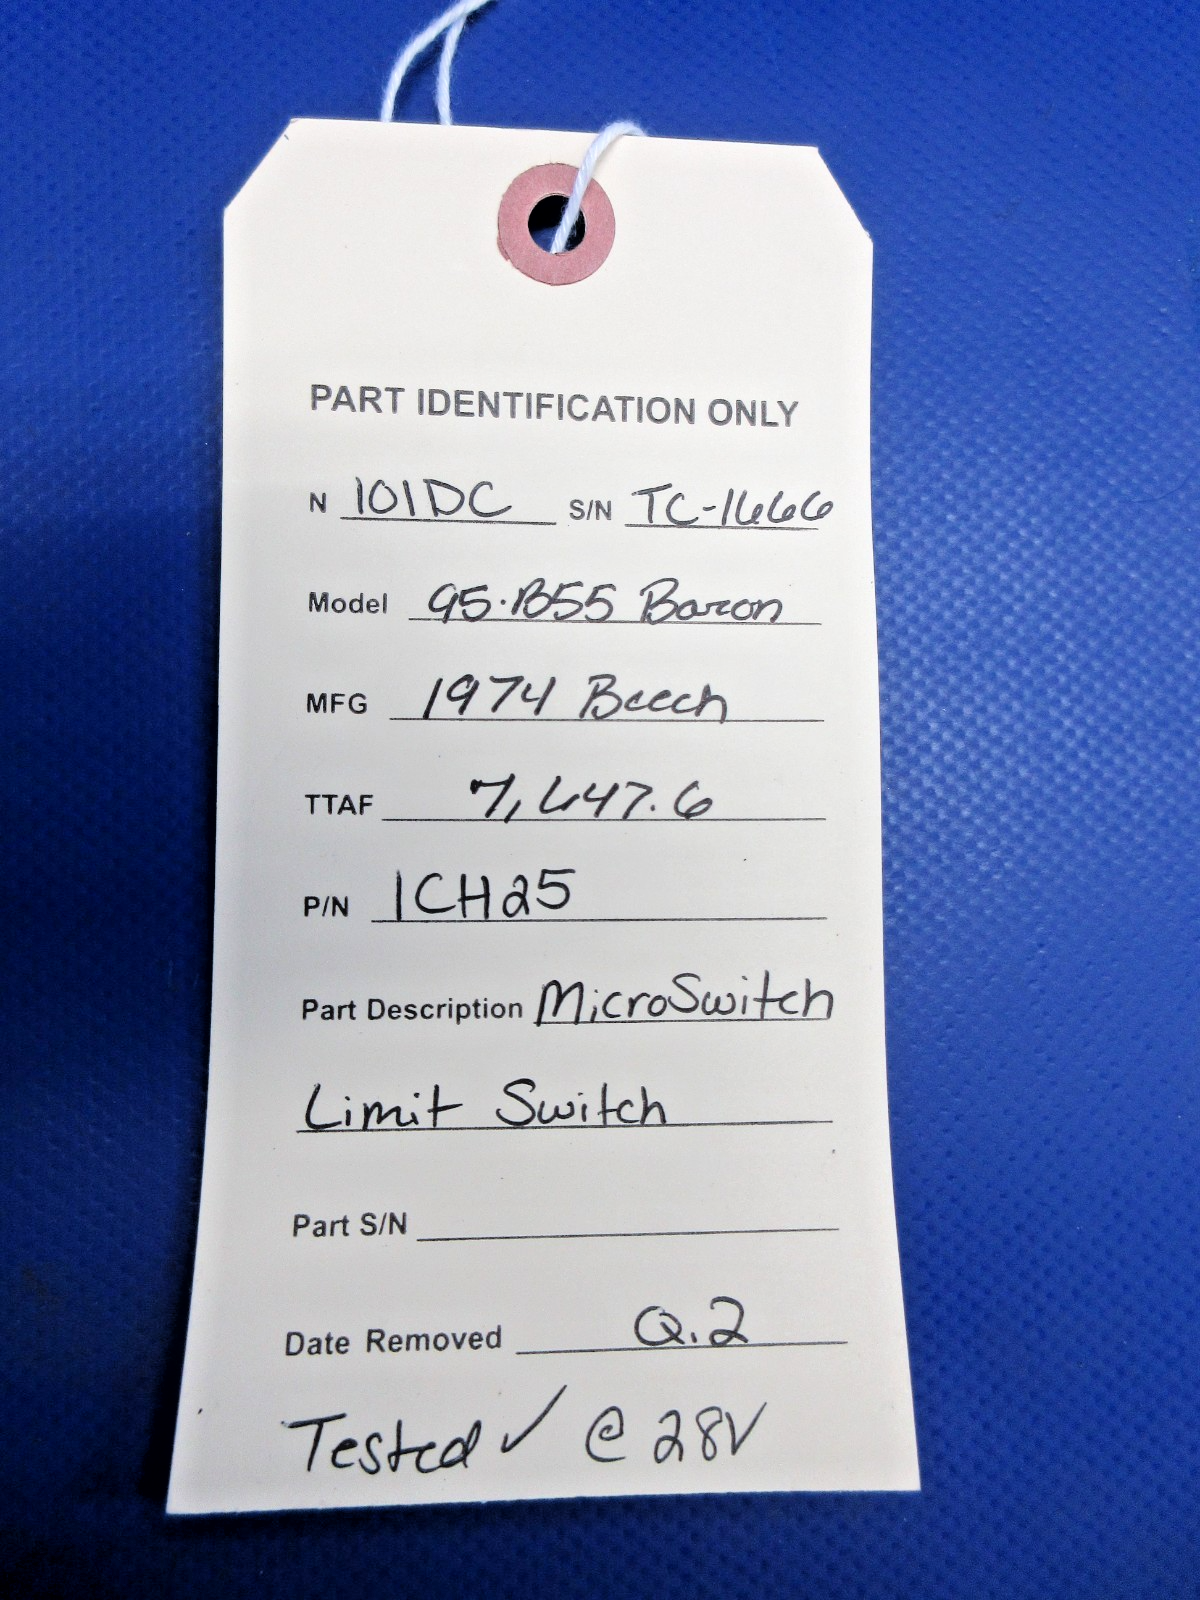 PART IDENTIFICATION ONLY
N 101DC S/N TC-1666
Model 95-B55 Baron
MFG 1974 Beech
TTAF 7,647.6
P/N 1CH25
Part Description MicroSwitch
Limit Switch
Part S/N
Date Removed Q.2
Tested ✓ @ 28V